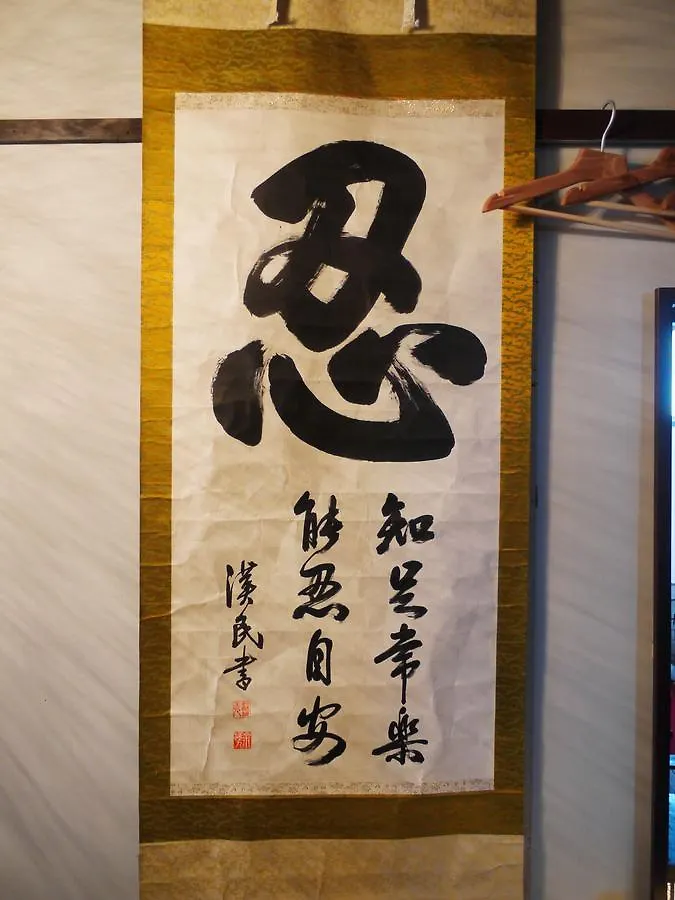 忍
知足常楽
能忍自安
漢民書